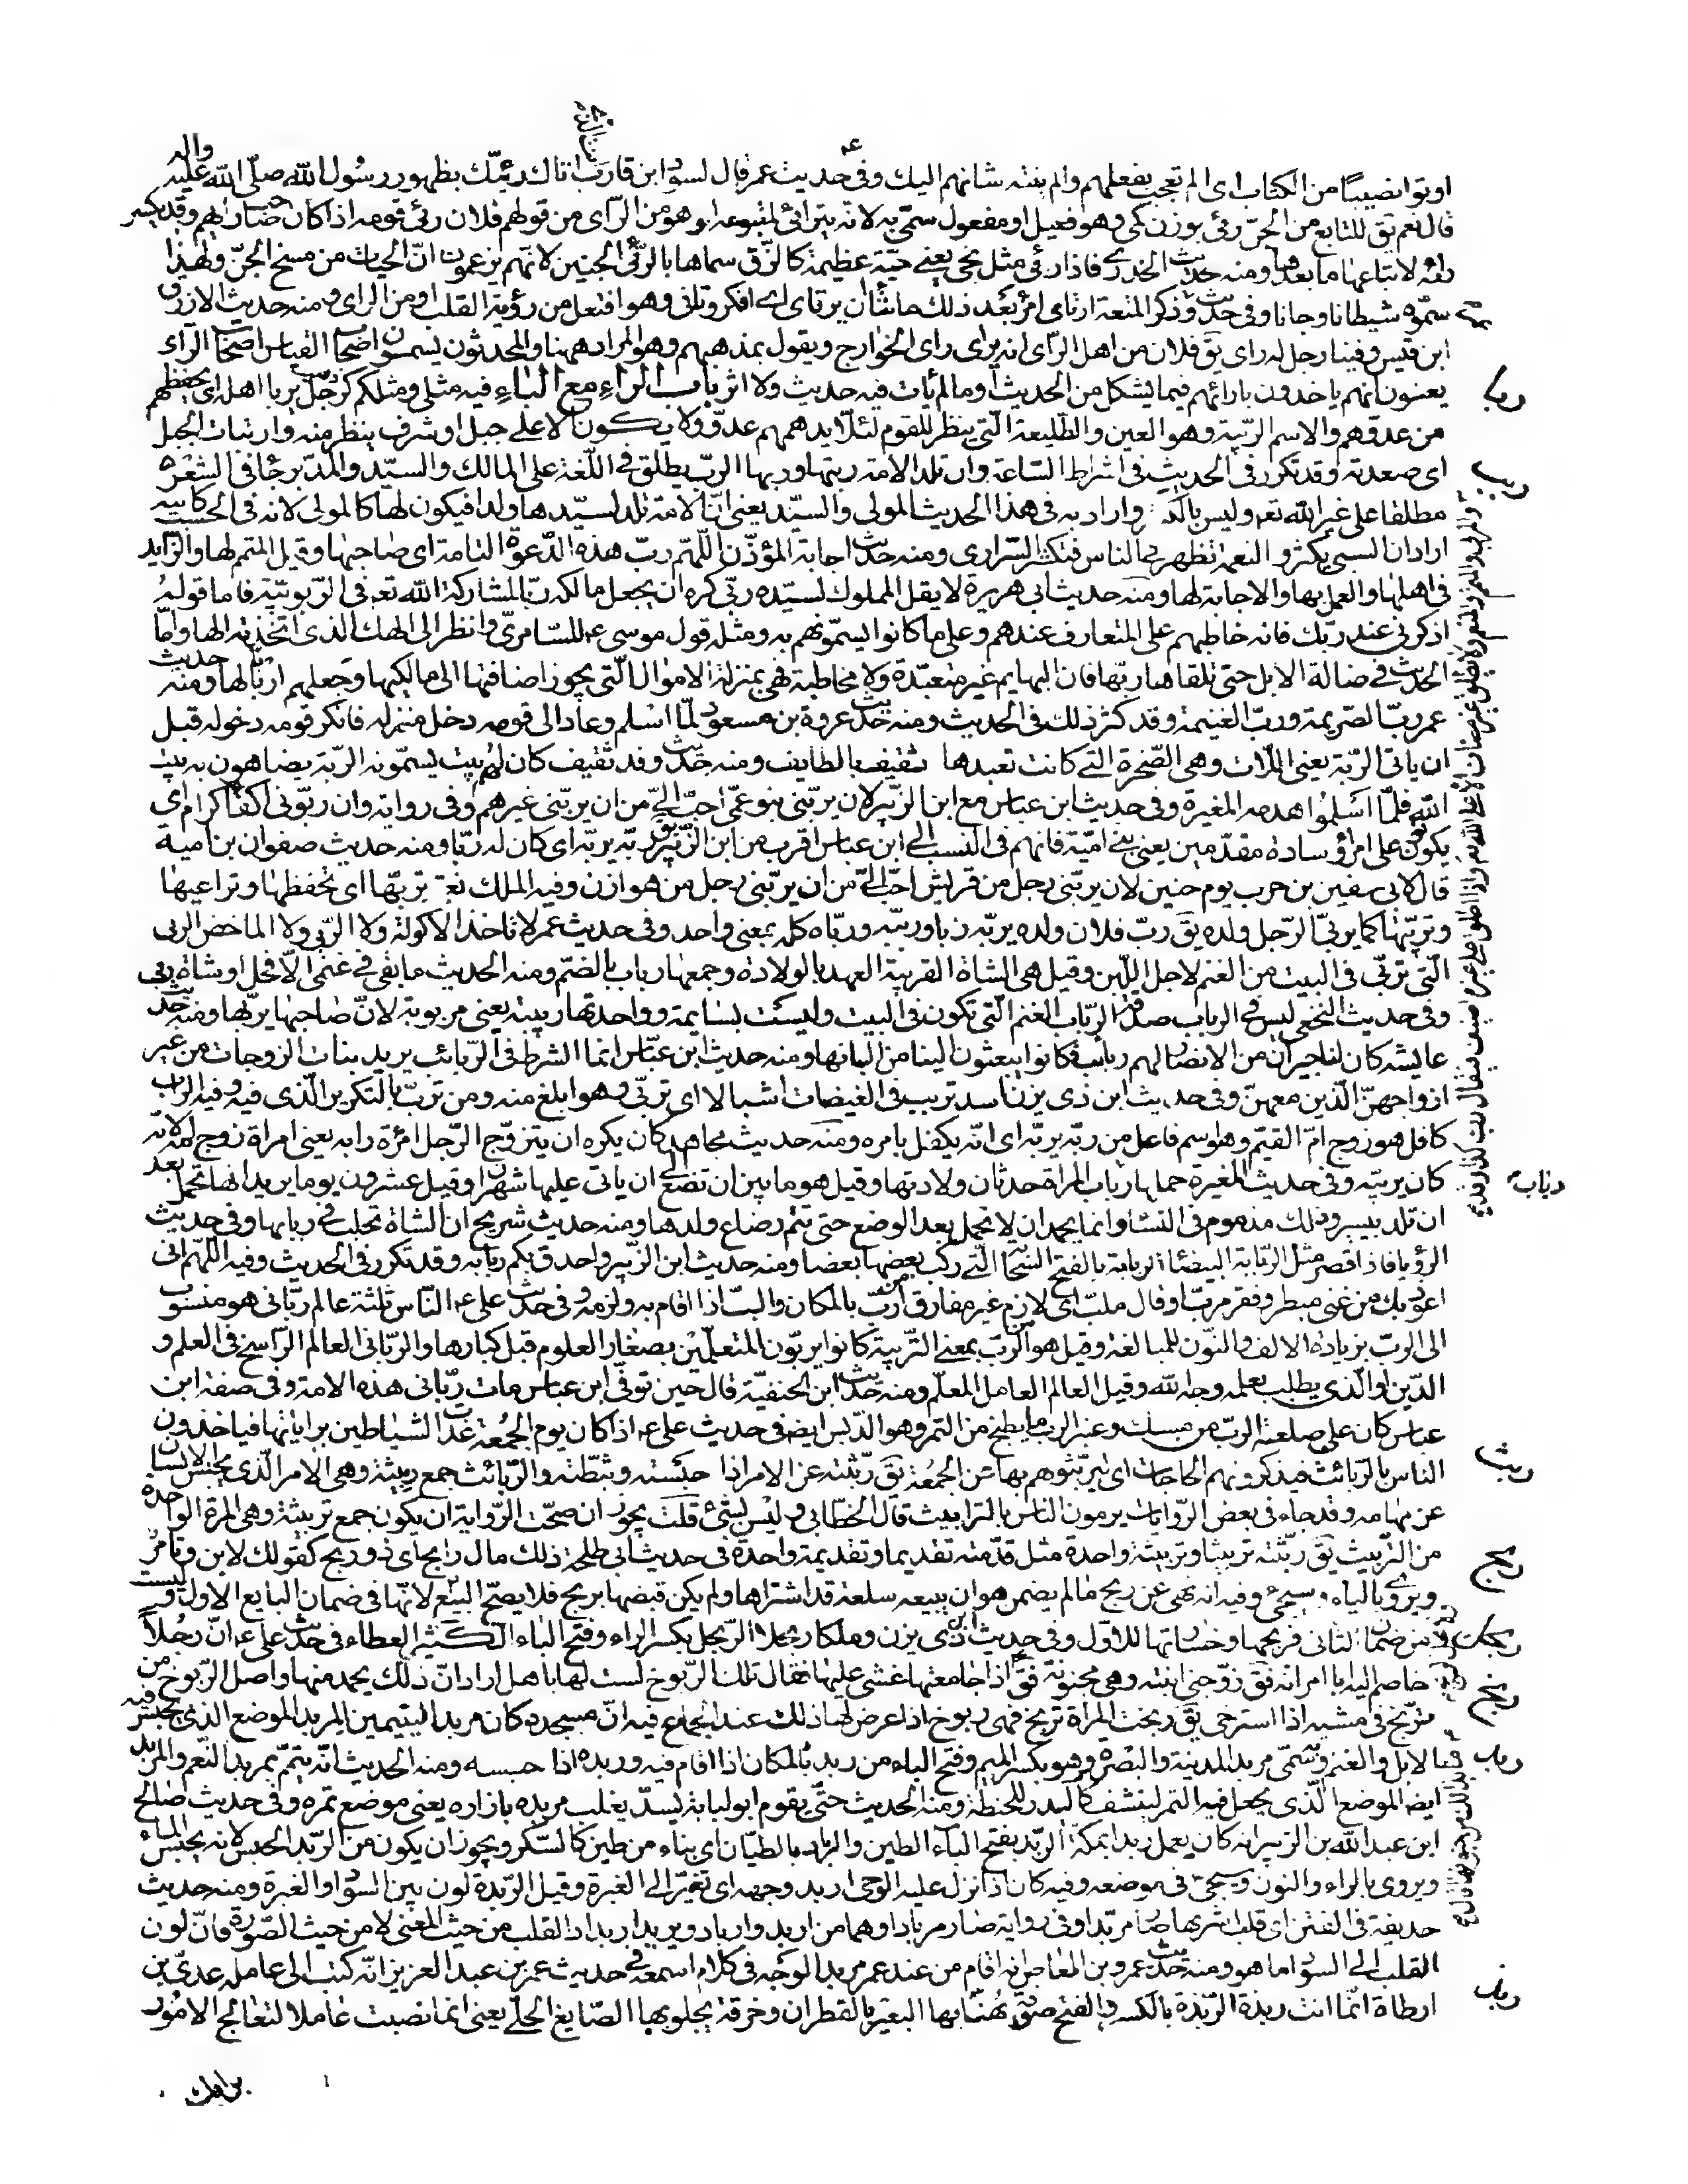 اوتوا نصيبا من الكتاب اى الم تعجب بفعلهم والم ينته شانهم اليك وفى حديث عمر قال لسواد ابن قارب انت الذى اتاك رئيّك بظهور رسول الله صلّى الله عليه واله
قال نعم يق للتابع من الجنّ رئى بوزن كمى وهو فعيل او مفعول سمّى به لانه يترائى لمتبوعه او هو من الرّاى من قولهم فلان رئى قومه اذا كان صاحب رايهم وقد يكسر
راؤه لاتباعها ما بعدها ومنه حديث الخدرى فاذا رئى مثل نحى يعنى حيّة عظيمة كالزّق سماها بالرّئى الجنّى لانهم يزعمون انّ الحيات من مسخ الجنّ ولهذا
سمّوه شيطانا وجانا وفى حديث عمر وذكر المتعة ارتاى امرؤ بعد ذلك ما شاء ان يرتاى اى افكر وتانى وهو افتعل من رؤية القلب او من الراى ومنه حديث الازرق
ابن قيس وفينا رجل له راى يق فلان من اهل الرّاى اى انه يرى راى الخوارج ويقول بمذهبهم وهو المراد ههنا والمحدثون يسمون اصحاب القياس اصحاب الرّاى
يعنون انهم ياخذون بارائهم فيما يشكل من الحديث او ما لم يات فيه حديث ولا اثر باب الراء مع الباء فيه مثلى ومثلكم كرجل ذهب يربا اهله اى يحفظهم
ربا
من عدوّهم والاسم الرّبيئة وهو العين والطّليعة الّتى ينظر للقوم لئلّا يدهمهم عدوّ ولا يكون الا على جبل او شرف ينظر منه وارتبات الجبل
اى صعدته وقد تكرر فى الحديث فى اشراط السّاعة وان تلد الامة ربتها او ربها الربّ يطلق فى اللّغة على المالك والسيّد والمدبّر
ربب
مطلقا على غير الله تعه وليس بالكثير واراد به فى هذا الحديث المولى والسيّد يعنى انّ الامة تلد لسيّدها ولدا فيكون لها كالمولى لانه فى الحسب كابيه
اراد ان السبى يكثر والنعمة تظهر فى الناس فتكثر السّرارى ومنه حديث اجابة المؤذّن اللّهم ربّ هذه الدّعوة التامة اى صاحبها وقيل المتمم لها والزّايد
فى اهلها والعمل بها والاجابة لها ومنه حديث ابى هريرة لا يقل المملوك لسيّده ربّى كره ان يجعل مالكه ربّا لمشاركة الله تعه فى الرّبوبيّة فاما قوله
اذكرنى عند ربّك فانه خاطبهم على المتعارف عندهم وعلى ما كانوا يسمّونهم به ومثله قول موسى عه للسّامرىّ وانظر الى الهك الذى اى اتخذته الها وامّا
الحديث فى ضالة الابل حتى تلقاها ربّها فان البهايم غير متعبّدة ولا مخاطبة فهى بمنزلة الاموال الّتى يجوز اضافتها الى مالكيها وجعلهم اربابا لها ومنه حديث
عمر ربّ الصّريمة وربّ الغنيمة وقد كثر ذلك فى الحديث ومنه حديث عروة بن مسعود لمّا اسلم وعاد الى قومه دخل منزله فانكر قومه دخوله قبل
ان ياتى الرّبة يعنى اللّات وهى الصّخرة التى كانت تعبدها ثقيف بالطايف ومنه حديث وفد ثقيف كان لهم بيت يسمّونه الربّة يضاهون به بيت
الله فلمّا اسلموا هدمه المغيرة وفى حديث ابن عباس مع ابن الزّبير لان يربّنى بنو عمّى احبّ الىّ من ان يربّنى غيرهم وفى رواية وان ربّونى ربّنى اكفاء كرام اى
يكونون علىّ امراء وسادة مقدّمين يعنى بنى اميّة فانهم فى النسب الى ابن عباس اقرب من ابن الزّبير يق ربّه يربّه اى كان له ربّا ومنه حديث صفوان بن امية
قال لابى سفين بن حرب يوم حنين لان يربّنى رجل من قريش احبّ الىّ من ان يربّنى رجل من هوازن وفيه الملك نعمة تربّها اى تحفظها وتراعيها
وتربّيها كما يربّى الرّجل ولده يق ربّ فلان ولده يربّه ربّا وربّبه وربّاه كله بمعنى واحد وفى حديث عمر لا تاخذ الاكولة ولا الرّبى ولا الماخض الربى
الّتى تربّى فى البيت من الغنم لاجل اللّبن وقيل هى الشاة القريبة العهد بالولادة وجمعها رباب بالضّم ومنه الحديث ما بقى فى غنمى الّا فحل او شاة ربى
وفى حديث النخعى ليس فى الربائب صدقة الرّبائب الغنم الّتى تكون فى البيت وليست بسايمة وواحدتها ربيبة يعنى مربوبة لانّ صاحبها يربّها ومنه حديث
عايشه كان لنا جيران من الانصار لهم ربائب فكانوا يبعثون الينا من البانها ومنه حديث ابن عبّاس انما الشرط فى الرّبائب يريد بنات الزوجات من غير
ازواجهنّ الّذين معهنّ وفى حديث ابن ذى يزن اسد تربب فى الغيضات اشبالا اى تربّى وهو ابلغ منه ومن تربّ بالتكرير الّذى فيه وفيه الرابّ
كافل هو زوج امّ اليتيم وهو اسم فاعل من ربّه يربّه اى انّه يكفل بامره ومنه حديث مجاهد كان يكره ان يتزوّج الرّجل امراة رابّه يعنى امراة زوج امه لانّه
كان يربّيه وفى حديث المغيرة حملها رباب رباب المراة حدثان ولادتها وقيل هو ما بين ان تضع الى ان ياتى عليها شهران وقيل عشرون يوما يريد انها تحمل بعد
رباب
ان تلد بيسير وذلك مذموم فى النساء وانما يحمد ان لا تحمل بعد الوضع حتى يتم رضاع ولدها ومنه حديث شريح ان الشاة تحلب فى ربابها وفى حديث
الرؤيا فاذا قصر مثل الرّبابة البيضاء الربابة بالفتح السّحابة الّتى ركب بعضها بعضا ومنه حديث ابن الزّبير واحدق بكم ربابه وقد تكرر فى الحديث وفيه اللّهم انى
اعوذ بك من غنى مبطر وفقر مربّ او قال ملبّ اى لازم غير مفارق من اربّ بالمكان والبّ اذا اقام به ولزمه وفى حديث على عه النّاس ثلثة عالم ربّانى هو منسوب
الى الربّ بزيادة الالف والنّون للمبالغة وقيل هو من الربّ بمعنى التّربية كانوا يربّون المتعلّمين بصغار العلوم قبل كبارها والربّانى العالم الرّاسخ فى العلم و
الدّين او الّذى يطلب بعلمه وجه الله وقيل العالم العامل المعلّم ومنه حديث ابن الحنفيّة قال حين توفّى ابن عباس مات ربّانى هذه الامة وفى صفة ابن
عباس كان على صلعته الربّ من مسك وعنبر الربّ ما يطبخ من التمر وهو الدّبس ايضه فى حديث على عه اذا كان يوم الجمعة غدت الشياطين براياتها فياخذون
الناس بالرّبائث فيذكرونهم الحاجات اى ليربّثوهم بها عن الجمعة يق ربّثته عن الامر اذا حبسته وثبّطته والرّبائث جمع ربيثة وهى الامر الّذى يحبس الانسان
ربث
عن مهامه وقد جاء فى بعض الرّوايات يرمون الناس بالترابيث قال الخطّابى وليس بشئ قلت يجوز ان صحّت الرّواية ان يكون جمع تربيثة وهى المرة الواحدة
من التّربيث يق ربّثته تربيثا وتربيثة واحدة مثل قدّمته تقديما وتقديمة واحدة فى حديث ابى طلحة ذلك مال رابح اى ذو ربح كقولك لابن وتامر
ربح
ويروى بالياء وسيجئ وفيه انه نهى عن ربح ما لم يضمن هو ان يبيعه سلعة قد اشتراها ولم يكن قبضها بربح فلا يصحّ البيع لانّها فى ضمان البايع الاول وليست
من ضمان الثانى فربحها وخسارتها للاول وفى حديث ابن ذى يزن وملكا ربحلا الرّبحل بكسر الراء وفتح الباء الكثير العطاء فى حديث على عه انّ رجلا
خاصم اليه ابا امراته فق زوّجنى ابنته وهى مجنونة فق اذا جامعتها غشى عليها فقال تلك الرّبوخ لست لها باهل اراد انّ ذلك يحمد منها واصل الرّبوخ من
ربخ
تربّخ فى مشيه اذا استرخى يق ربخت المراة تربخ فهى ربوخ اذا عرض لها ذلك عند الجماع فيه انّ مسجده كان مربدا ليتيمين المربد الموضع الذى يحبس فيه
الابل والغنم وبه سمّى مربد المدينة والبصرة وهو بكسر الميم وفتح الباء من ربد بالمكان اذا اقام فيه وربده اذا حبسه ومنه الحديث انّه تيمّم بمربد النّعم والمربد
ربد
ايضه الموضع الّذى يجعل فيه التمر لينشف كالبيدر للحنطة ومنه الحديث حتّى يقوم ابو لبابة يسدّ ثعلب مربده بازاره يعنى موضع تمره وفى حديث صالح
ابن عبد الله بن الزّبير انه كان يعمل ربدا بمكّة الرّبد بفتح الباء الطين والرباد الطيّان اى بناء من طين كالسّكر ويجوز ان يكون من الرّبد الحبس لانه يحبس الماء
ويروى بالراء والنون وسيجئ فى موضعه وفيه كان اذا نزل عليه الوحى اربد وجهه اى تغيّر الى الغبرة وقيل الرّبدة لون بين السّواد والغبرة ومنه حديث
حذيفة فى الفتن اى قلب اشربها صار مربدّا وفى رواية صار مربادا وهما من اربد وارباد ويريد اربداد القلب من حيث المعنى لا من حيث الصّورة فانّ لون
القلب الى السّواد ما هو ومنه حديث عمرو بن العاص انه قام من عند عمر مربد الوجه فى كلام اسمعه فى حديث عمر بن عبد العزيز انّه كتب الى عامله عدىّ بن
ارطاة انّما انت ربذة الرّبذة بالكسر والفتح صوفة يهنأ بها البعير بالقطران وخرقة يجلو بها الصّايغ الحلّى يعنى انما نصبت عاملا لتعالج الامور
ربذ
برايك